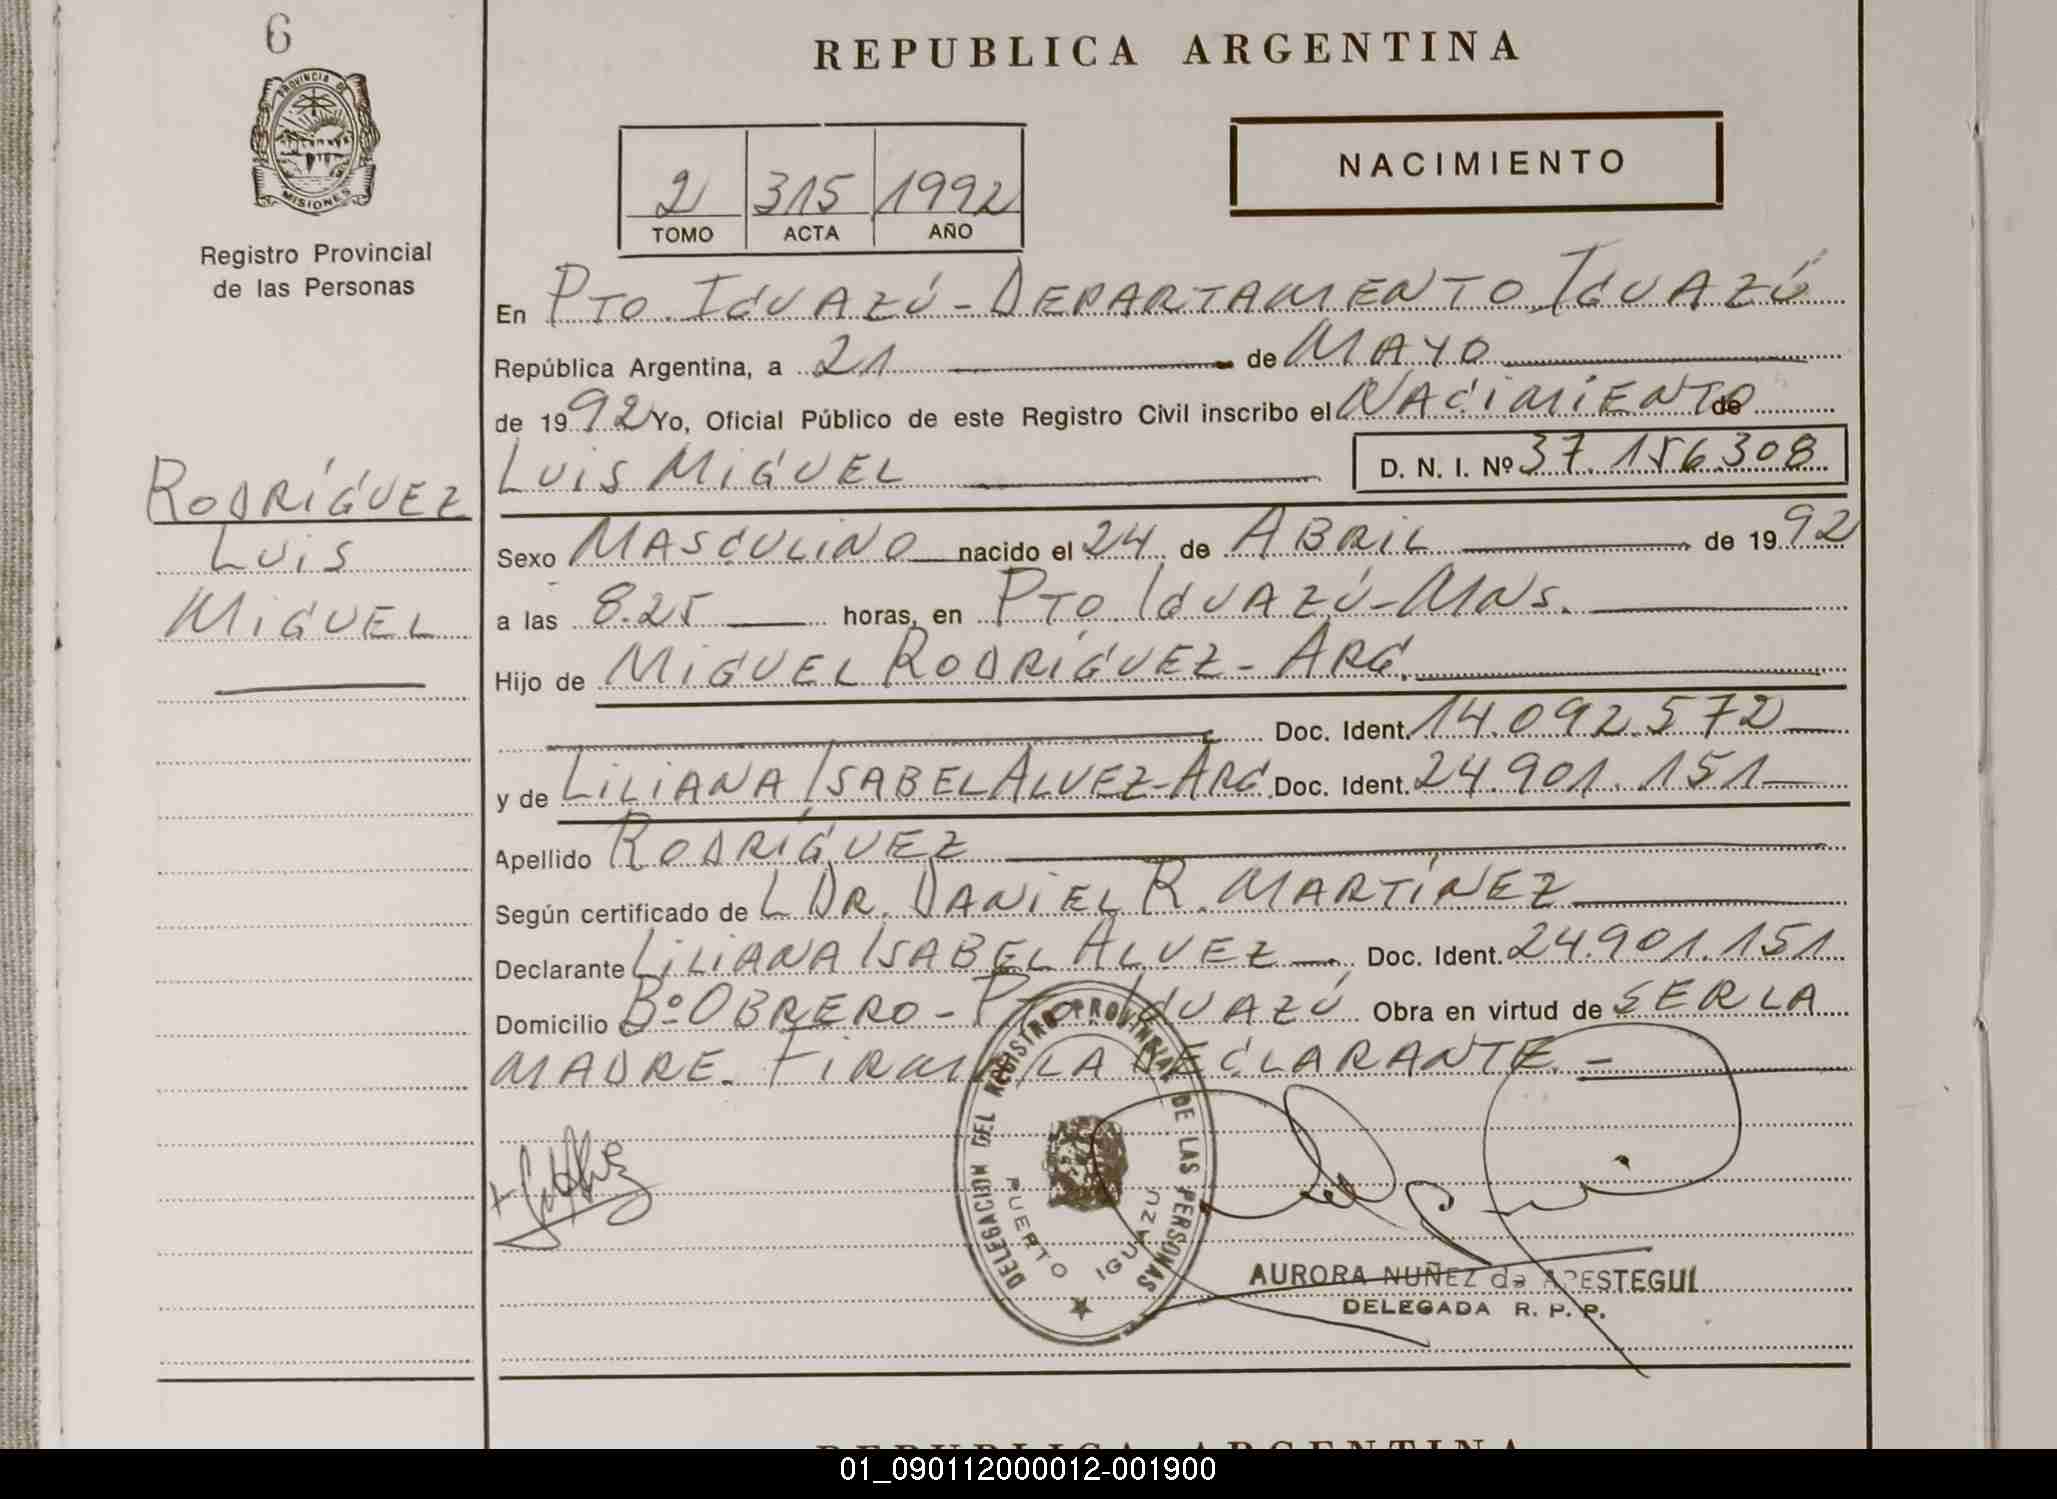 6
PROVINCIA DE
MISIONES
Registro Provincial
de las Personas
RODRÍGUEZ
LUIS
MIGUEL
REPUBLICA ARGENTINA
2 315 1992
TOMO ACTA AÑO
NACIMIENTO
En PTO. IGUAZÚ - DEPARTAMENTO IGUAZÚ
República Argentina, a 21 de MAYO
de 1992 Yo, Oficial Público de este Registro Civil inscribo el NACIMIENTO de
LUIS MIGUEL D. N. I. Nº 37.156.308
Sexo MASCULINO nacido el 24 de ABRIL de 1992
a las 8.25 horas, en PTO. IGUAZÚ - MNS.
Hijo de MIGUEL RODRÍGUEZ - ARG.
Doc. Ident. 14.092.572
y de LILIANA ISABEL ALVEZ - ARG. Doc. Ident. 24.901.151
Apellido RODRÍGUEZ
Según certificado de L DR. DANIEL R. MARTÍNEZ
Declarante LILIANA ISABEL ALVEZ Doc. Ident. 24.901.151
Domicilio Bº OBRERO - PTO. IGUAZÚ Obra en virtud de SER LA
MADRE. FIRMA LA DECLARANTE. -
DELEGACION DEL REGISTRO PROVINCIAL DE LAS PERSONAS
PUERTO IGUAZU
AURORA NUÑEZ de APESTEGUI
DELEGADA R. P. P.
REPUBLICA ARGENTINA
01_090112000012-001900